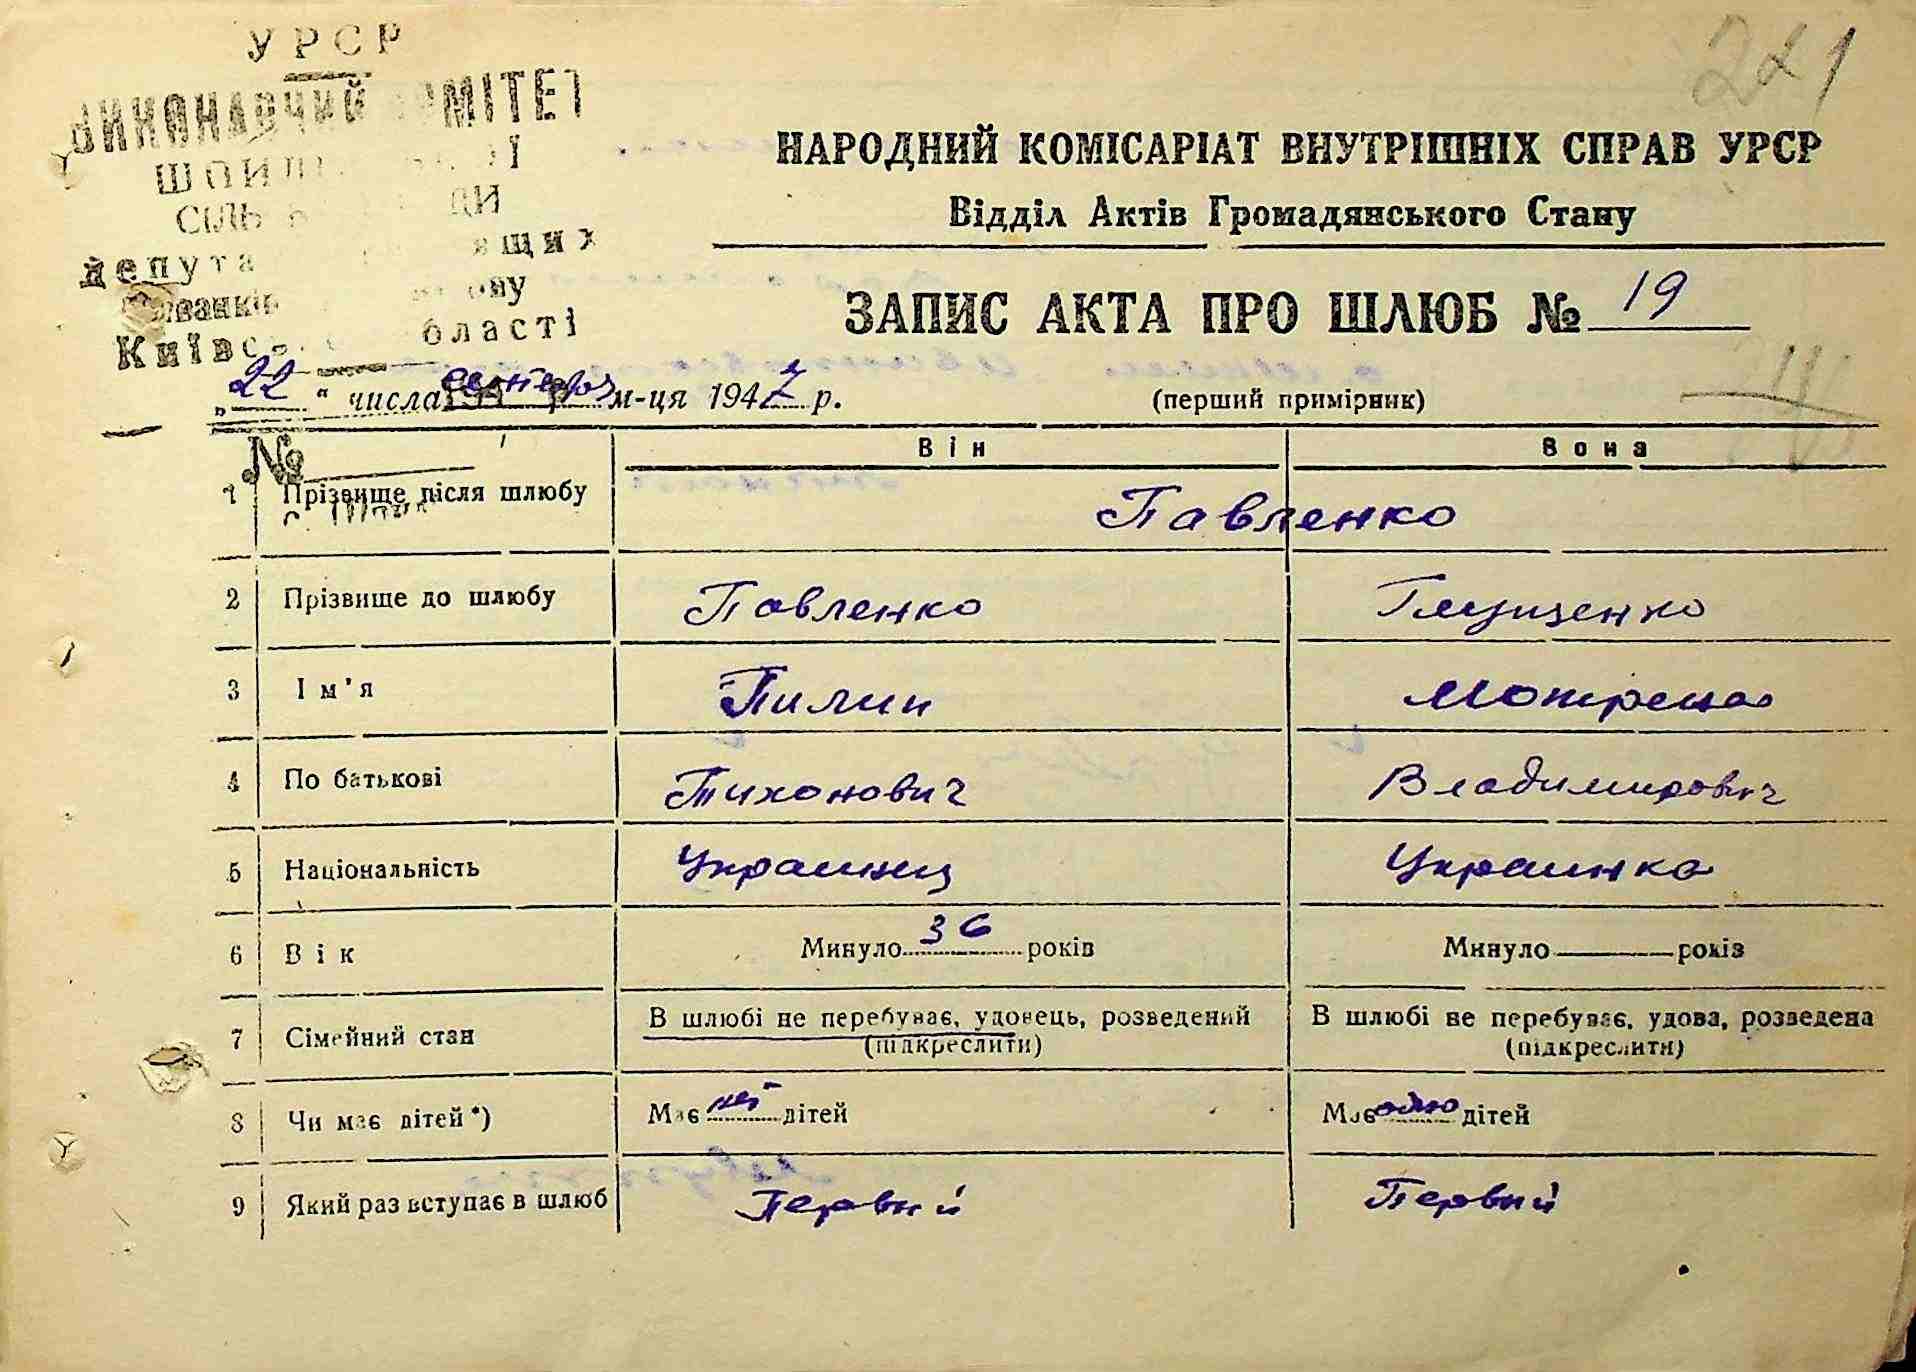 УРСР
ВИКОНАВЧИЙ КОМІТЕТ
депута
Київс області
241
НАРОДНИЙ КОМІСАРІАТ ВНУТРІШНІХ СПРАВ УРСР
Відділ Актів Громадянського Стану
ЗАПИС АКТА ПРО ШЛЮБ № 19
„22“ числа сентября м-ця 1947 р.
(перший примірник)
№
Він Вона
1 Прізвище після шлюбу Павленко
2 Прізвище до шлюбу Павленко Глущенко
3 Ім'я Пилип Мотрена
4 По батькові Тихонович Владимирович
5 Національність Украинец Украинка
6 Вік Минуло 36 років Минуло — років
7 Сімейний стан В шлюбі не перебуває, удовець, розведений В шлюбі не перебуває, удова, розведена
(підкреслити) (підкреслити)
8 Чи має дітей*) Має нет дітей Має одно дітей
9 Який раз вступає в шлюб Первий Первий